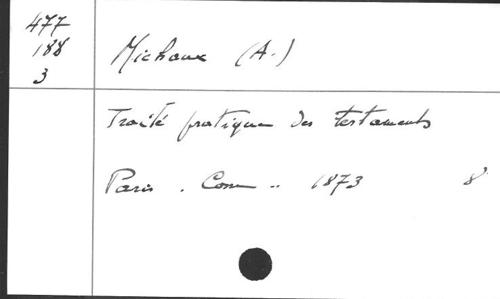 477
188
3
Michaux (A.)
Traité pratique des testaments
Paris . 1873 8°